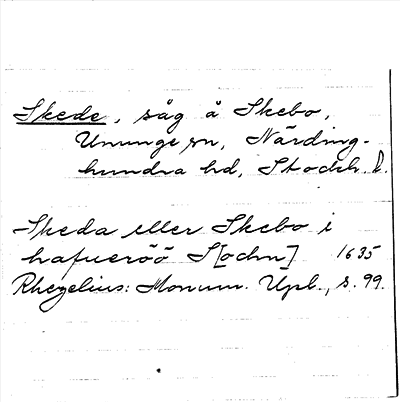 Skede, såg å Skebo,
Ununge sn, Närding-
hundra hd, Stockh. l.
Skeda eller Skebo i
hafueröö S[ochn] 1635
Rhezelius: Monum. Upl., s. 99.